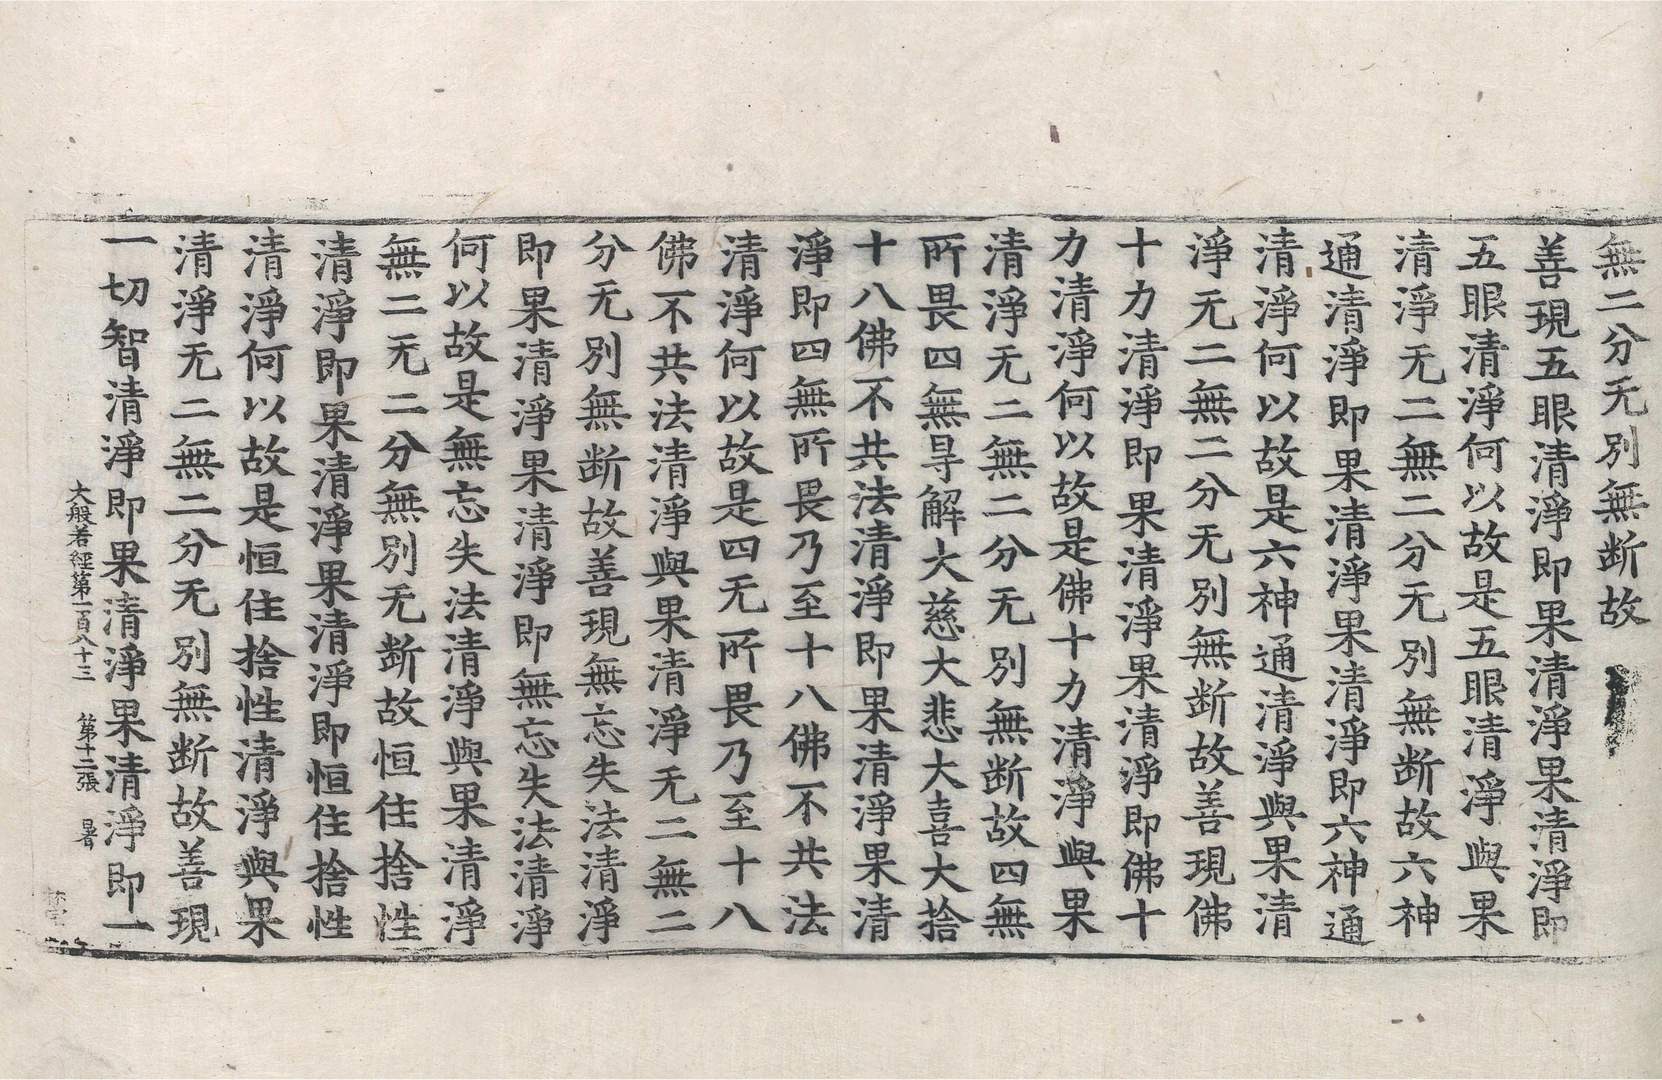 無二分无別無断故
善現五眼清淨即果清淨果清淨即
五眼清淨何以故是五眼清淨與果
清淨无二無二分无別無断故六神
通清淨即果清淨果清淨即六神通
清淨何以故是六神通清淨與果清
淨无二無二分无別無断故善現佛
十力清淨即果清淨果清淨即佛十
力清淨何以故是佛十力清淨與果
清淨无二無二分无別無断故四無
所畏四無㝵解大慈大悲大喜大捨
十八佛不共法清淨即果清淨果清
淨即四無所畏乃至十八佛不共法
清淨何以故是四无所畏乃至十八
佛不共法清淨與果清淨无二無二
分无別無断故善現無忘失法清淨
即果清淨果清淨即無忘失法清淨
何以故是無忘失法清淨與果清淨
無二无二分無別无断故恒住捨性
清淨即果清淨果清淨即恒住捨性
清淨何以故是恒住捨性清淨與果
清淨无二無二分无別無断故善現
一切智清淨即果清淨果清淨即一
大般若經第一百八十三 第十二張 暑